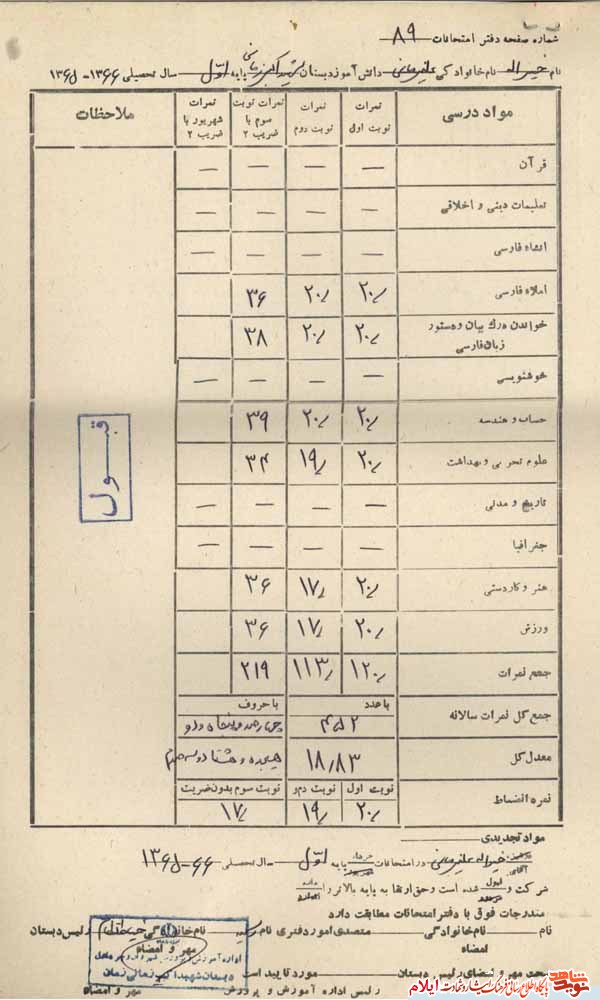 شماره صفحه دفتر امتحانات ۸۹
نام خیراله نام خانوادگی دانش آموز دبستان شهید پایه اول سال تحصیلی ۱۳۶۶-۱۳۶۵
مواد درسی نمرات نوبت اول نمرات نوبت دوم نمرات نوبت سوم با ضریب ۲ نمرات شهریور با ضریب ۲ ملاحظات
قرآن — — — —
تعلیمات دینی و اخلاقی — — — —
انشاء فارسی — — — —
املاء فارسی ۲۰٫ ۲۰٫ ۳۶
خواندن درک بیان و دستور زبان فارسی ۲۰٫ ۲۰٫ ۳۸
خوشنویسی — — — —
حساب و هندسه ۲۰٫ ۲۰٫ ۳۹
علوم تجربی و بهداشت ۲۰٫ ۱۹٫ ۳۴
تاریخ و مدنی — — — —
جغرافیا — — — —
هنر و کاردستی ۲۰٫ ۱۷٫ ۳۶
ورزش ۲۰٫ ۱۷٫ ۳۶
جمع نمرات ۱۲۰٫ ۱۱۳٫ ۲۱۹
قبول
با عدد با حروف
جمع کل نمرات سالانه ۴۵۲ چهارصد و پنجاه و دو
معدل کل ۱۸٫۸۳ هیجده و هشتاد و سه صدم
نوبت اول نوبت دوم نوبت سوم بدون ضریب
نمره انضباط ۲۰٫ ۱۹٫ ۱۷٫
مواد تجدیدی
آقای خیراله در امتحانات خرداد پایه اول سال تحصیلی ۶۶-۱۳۶۵
شرکت و قبول شده است و حق ارتقا به پایه بالاتر را دارد
مندرجات فوق با دفتر امتحانات مطابقت دارد
نام نام خانوادگی متصدی امور دفتری نام نام خانوادگی رئیس دبستان
امضاء مهر و امضاء
صحت مهر و امضای رئیس دبستان مورد تایید است
رئیس اداره آموزش و پرورش مهر و امضاء
نوید شاهد
پایگاه اطلاع رسانی فرهنگ ایثار و شهادت ایلام